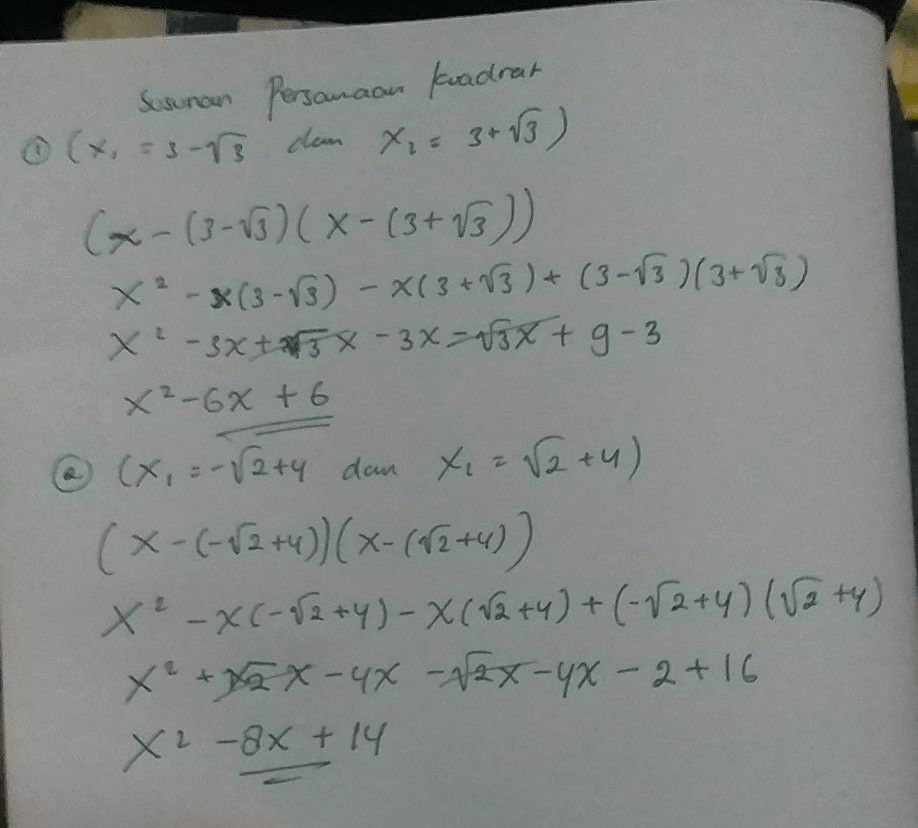 Susunan Persamaan kuadrat
① (x₁ = 3 - √3 dan x₂ = 3 + √3)
(x - (3-√3)(x - (3+√3))
x² - x(3-√3) - x(3+√3) + (3-√3)(3+√3)
x² - 3x + √3x - 3x - √3x + 9 - 3
x² - 6x + 6
② (x₁ = -√2+4 dan x₂ = √2+4)
(x - (-√2+4))(x - (√2+4))
x² - x(-√2+4) - x(√2+4) + (-√2+4)(√2+4)
x² + √2x - 4x - √2x - 4x - 2 + 16
x² - 8x + 14